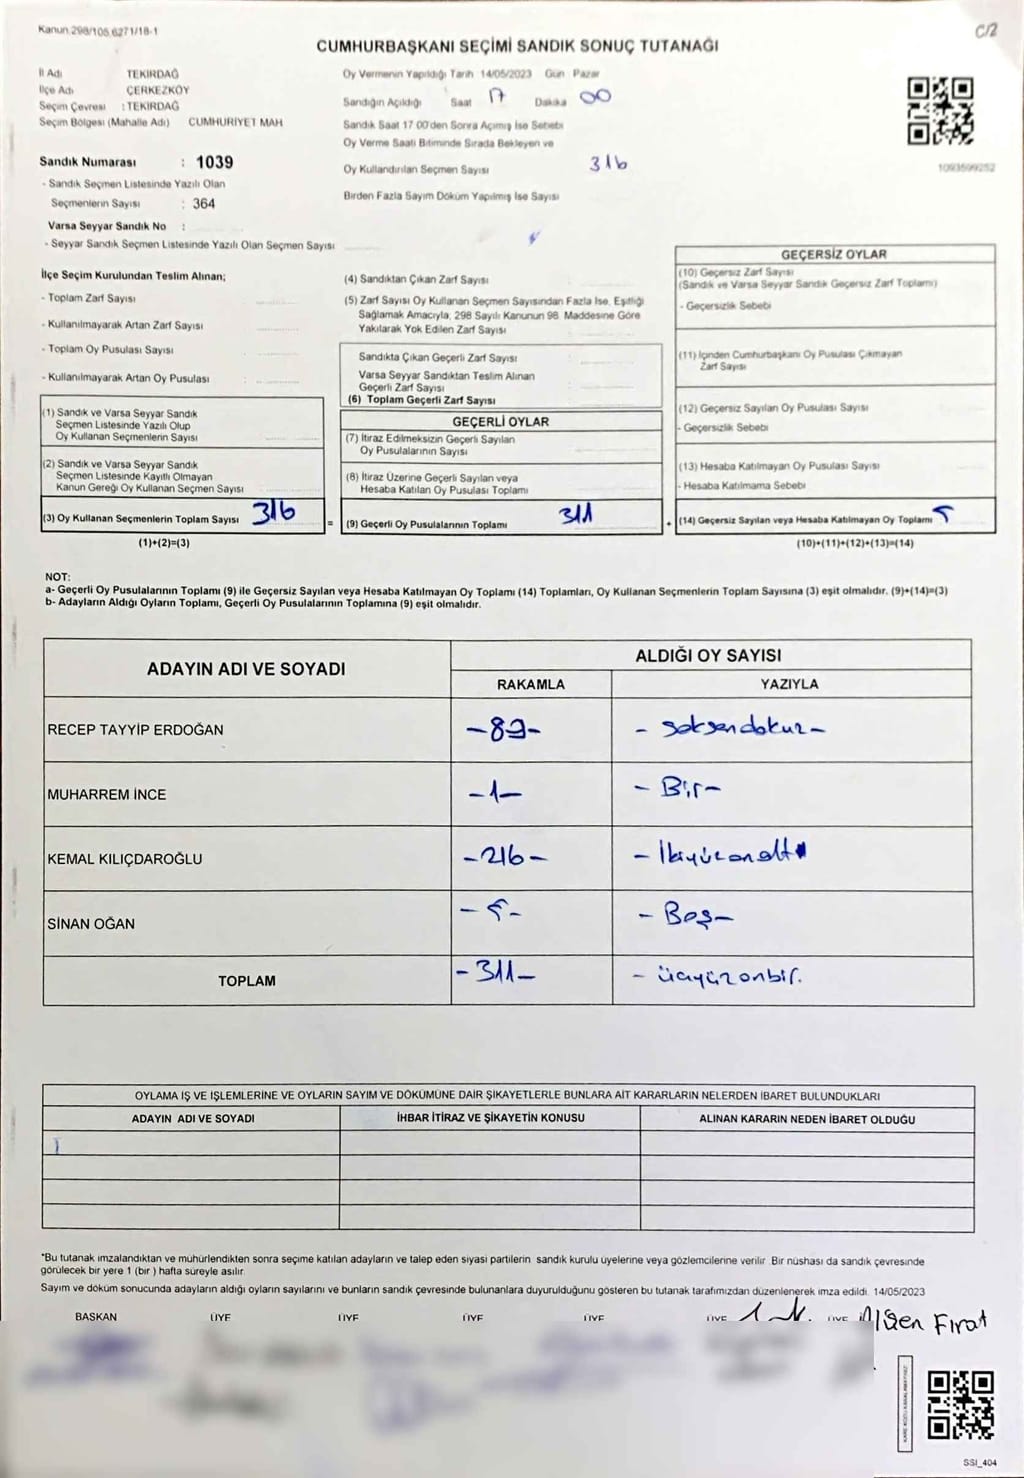 Kanun.298/105.6271/18-1
C/2
CUMHURBAŞKANI SEÇİMİ SANDIK SONUÇ TUTANAĞI
İl Adı TEKİRDAĞ
İlçe Adı ÇERKEZKÖY
Seçim Çevresi : TEKİRDAĞ
Seçim Bölgesi (Mahalle Adı) CUMHURİYET MAH
Sandık Numarası : 1039
- Sandık Seçmen Listesinde Yazılı Olan
Seçmenlerin Sayısı : 364
Varsa Seyyar Sandık No :
- Seyyar Sandık Seçmen Listesinde Yazılı Olan Seçmen Sayısı
Oy Vermenin Yapıldığı Tarih 14/05/2023 Gün Pazar
Sandığın Açıldığı Saat 17 Dakika 00
Sandık Saat 17 00'den Sonra Açımış İse Sebebi
Oy Verme Saati Bitiminde Sırada Bekleyen ve
Oy Kullandırılan Seçmen Sayısı 316
Birden Fazla Sayım Döküm Yapılmış İse Sayısı
1093599252
İlçe Seçim Kurulundan Teslim Alınan;
- Toplam Zarf Sayısı
- Kullanılmayarak Artan Zarf Sayısı
- Toplam Oy Pusulası Sayısı
- Kullanılmayarak Artan Oy Pusulası
(1) Sandık ve Varsa Seyyar Sandık
Seçmen Listesinde Yazılı Olup
Oy Kullanan Seçmenlerin Sayısı
(2) Sandık ve Varsa Seyyar Sandık
Seçmen Listesinde Kayıtlı Olmayan
Kanun Gereği Oy Kullanan Seçmen Sayısı
(3) Oy Kullanan Seçmenlerin Toplam Sayısı 316
(1)+(2)=(3)
=
(4) Sandıktan Çıkan Zarf Sayısı
(5) Zarf Sayısı Oy Kullanan Seçmen Sayısından Fazla İse, Eşitliği
Sağlamak Amacıyla, 298 Sayılı Kanunun 98. Maddesine Göre
Yakılarak Yok Edilen Zarf Sayısı
Sandıkta Çıkan Geçerli Zarf Sayısı
Varsa Seyyar Sandıktan Teslim Alınan
Geçerli Zarf Sayısı
(6) Toplam Geçerli Zarf Sayısı
GEÇERLİ OYLAR
(7) İtiraz Edilmeksizin Geçerli Sayılan
Oy Pusulalarının Sayısı
(8) İtiraz Üzerine Geçerli Sayılan veya
Hesaba Katılan Oy Pusulası Toplamı
(9) Geçerli Oy Pusulalarının Toplamı 311
+
GEÇERSİZ OYLAR
(10) Geçersiz Zarf Sayısı
(Sandık ve Varsa Seyyar Sandık Geçersiz Zarf Toplamı)
- Geçersizlik Sebebi
(11) İçinden Cumhurbaşkanı Oy Pusulası Çıkmayan
Zarf Sayısı
(12) Geçersiz Sayılan Oy Pusulası Sayısı
- Geçersizlik Sebebi
(13) Hesaba Katılmayan Oy Pusulası Sayısı
- Hesaba Katılmama Sebebi
(14) Geçersiz Sayılan veya Hesaba Katılmayan Oy Toplamı 5
(10)+(11)+(12)+(13)=(14)
NOT:
a- Geçerli Oy Pusulalarının Toplamı (9) ile Geçersiz Sayılan veya Hesaba Katılmayan Oy Toplamı (14) Toplamları, Oy Kullanan Seçmenlerin Toplam Sayısına (3) eşit olmalıdır. (9)+(14)=(3)
b- Adayların Aldığı Oyların Toplamı, Geçerli Oy Pusulalarının Toplamına (9) eşit olmalıdır.
ADAYIN ADI VE SOYADI
ALDIĞI OY SAYISI
RAKAMLA YAZIYLA
RECEP TAYYİP ERDOĞAN -89- - seksendokuz-
MUHARREM İNCE -1- - Bir-
KEMAL KILIÇDAROĞLU -216- - İkiyüzonaltı
SİNAN OĞAN -5- - Beş-
TOPLAM -311- - üçyüzonbir.
OYLAMA İŞ VE İŞLEMLERİNE VE OYLARIN SAYIM VE DÖKÜMÜNE DAİR ŞİKAYETLERLE BUNLARA AİT KARARLARIN NELERDEN İBARET BULUNDUKLARI
ADAYIN ADI VE SOYADI İHBAR İTİRAZ VE ŞİKAYETİN KONUSU ALINAN KARARIN NEDEN İBARET OLDUĞU
*Bu tutanak imzalandıktan ve mühürlendikten sonra seçime katılan adayların ve talep eden siyasi partilerin sandık kurulu üyelerine veya gözlemcilerine verilir. Bir nüshası da sandık çevresinde
görülecek bir yere 1 (bir ) hafta süreyle asılır.
Sayım ve döküm sonucunda adayların aldığı oyların sayılarını ve bunların sandık çevresinde bulunanlara duyurulduğunu gösteren bu tutanak tarafımızdan düzenlenerek imza edildi. 14/05/2023
BAŞKAN ÜYE ÜYE ÜYE ÜYE ÜYE ÜYE
Fırat
SSI_404